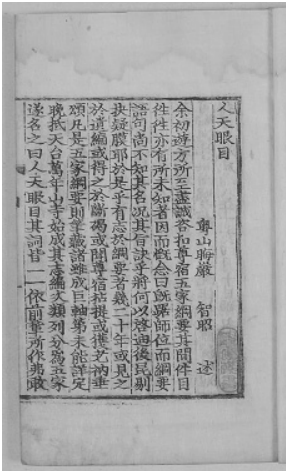 人天眼目
越山晦巖 智昭 述
余初遊方所至盡誠咨扣尊宿五家綱要其間件目
往往亦有所未知者因而慨念曰既據師位而綱要
語句尚不知其名況其旨訣乎將何以啓迪後昆剔
抉疑膜耶於是乎有志於綱要者幾二十年或見之
於遺編或得之於斷碣或聞尊宿稱提或獲老衲垂
頌凡是五家綱要則筆藏諸雖成巨軸第未能詳定
晚抵天台萬年山寺始成其志編次類列分爲五家
遂名之曰人天眼目其詞皆一一依前輩所作弗敢